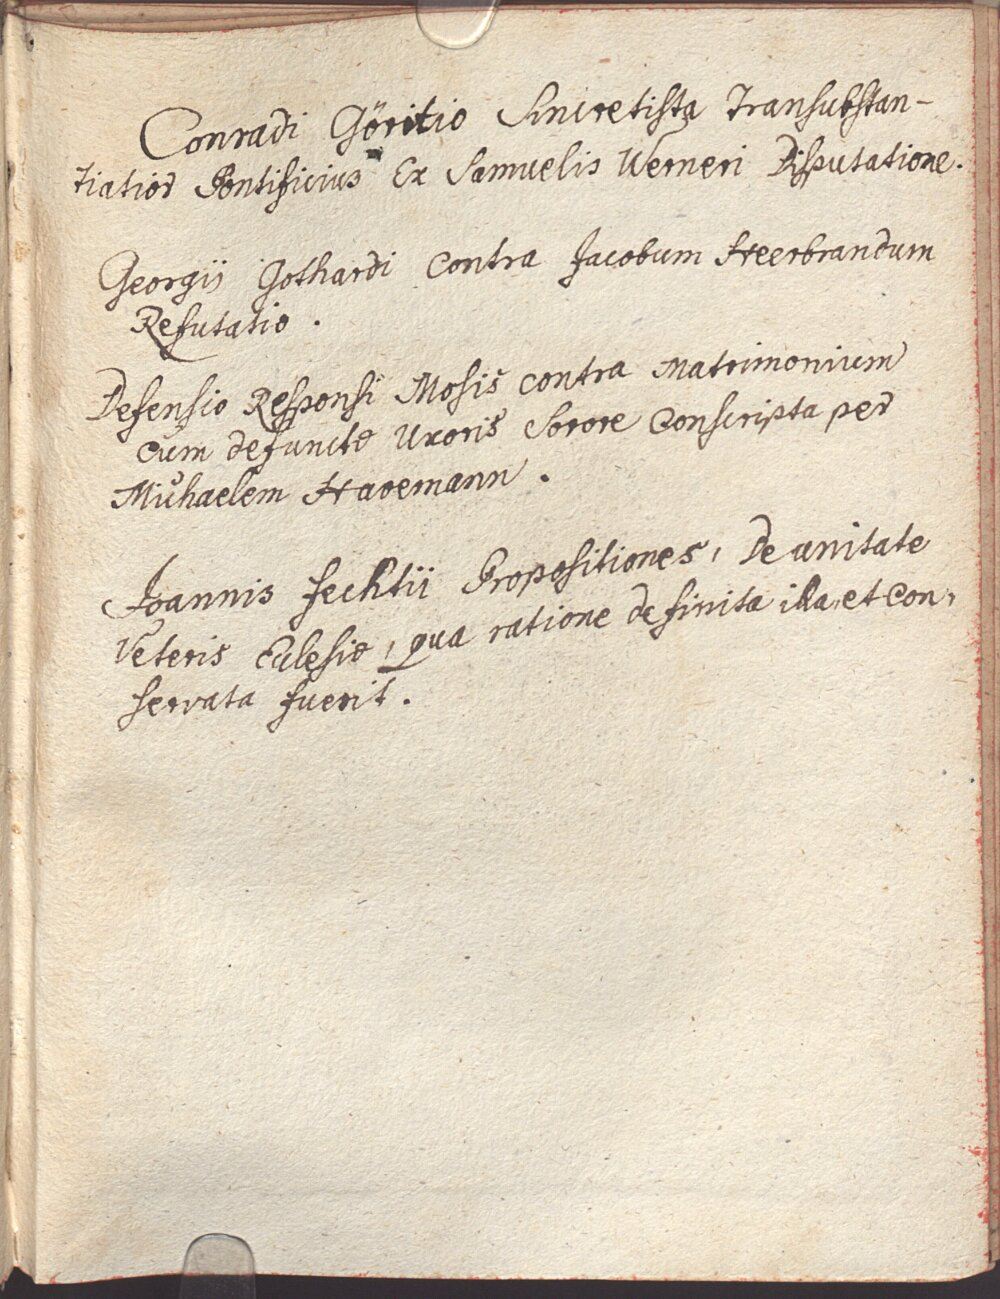 Conradi Göritio Sincretista Transubstan-
tiatior Pontificius Ex Samuelis Werneri Disputatione.
Georgij Gothardi Contra Jacobum Heerbrandum
Refutatio.
Defensio Responsi Mosis contra Matrimonium
cum defuncte Uxoris Sorore Conscripta per
Michaelem Havemann.
Joannis Fechtii Propositiones, De unitate
Veteris Eclesie, qua ratione definita illa, et con,
servata fuerit.